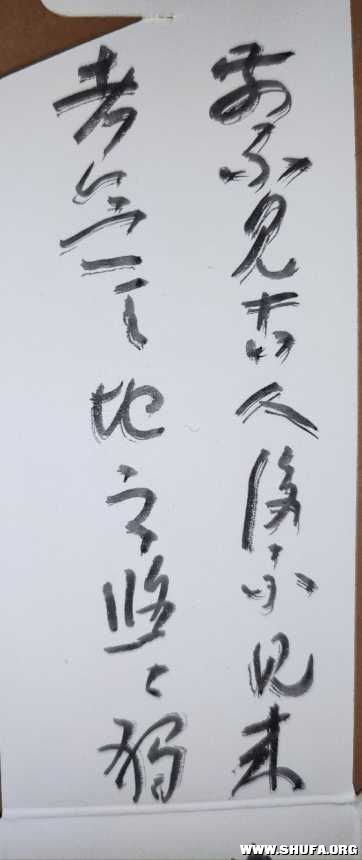 前不見古人後不見来
者念天地之悠々独
WWW.SHUFA.ORG